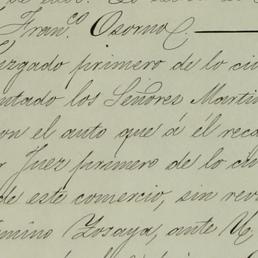 Fran.co Osorno.
uzgado primero de lo ci
ntado los Señores Martin
on el auto que á él reca
r Juez primero de lo civ
de este comercio, sin rev
mino Zosaya, ante U.